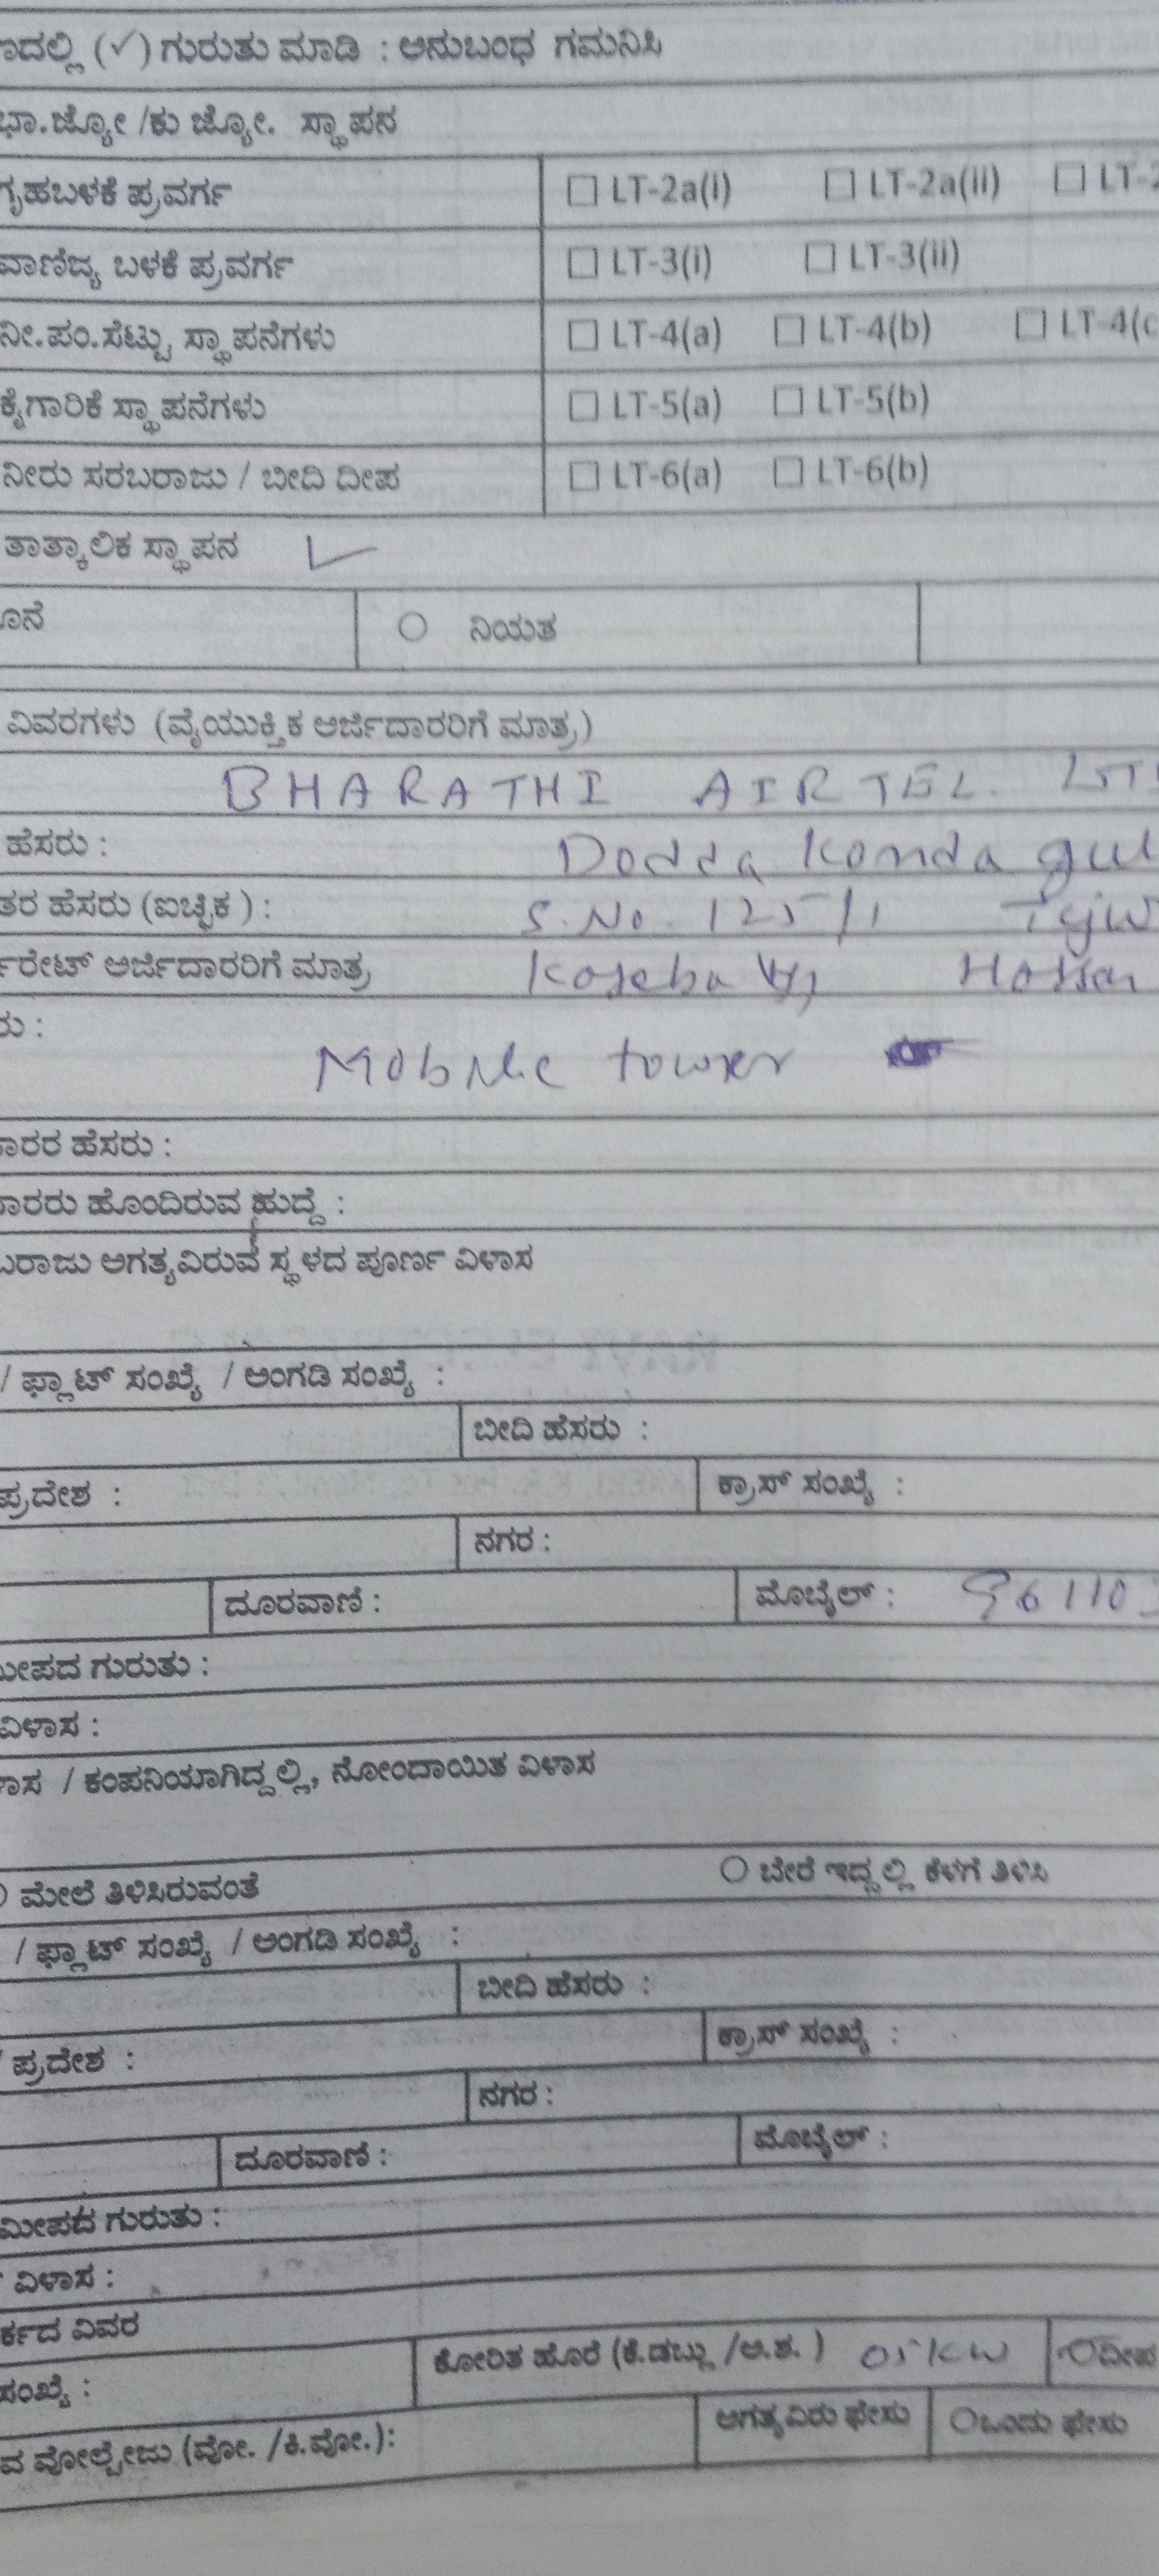 ಣದಲ್ಲಿ (✓) ಗುರುತು ಮಾಡಿ : ಅನುಬಂಧ ಗಮನಿಸಿ
ಭಾ.ಜ್ಯೋ /ಕು ಜ್ಯೋ. ಸ್ಥಾಪನ
ಗೃಹಬಳಕೆ ಪ್ರವರ್ಗ ☐ LT-2a(i) ☐ LT-2a(ii) ☐ LT-2
ವಾಣಿಜ್ಯ ಬಳಕೆ ಪ್ರವರ್ಗ ☐ LT-3(i) ☐ LT-3(ii)
ನೀ.ಪಂ.ಸೆಟ್ಟು ಸ್ಥಾಪನೆಗಳು ☐ LT-4(a) ☐ LT-4(b) ☐ LT-4(c
ಕೈಗಾರಿಕೆ ಸ್ಥಾಪನೆಗಳು ☐ LT-5(a) ☐ LT-5(b)
ನೀರು ಸರಬರಾಜು / ಬೀದಿ ದೀಪ ☐ LT-6(a) ☐ LT-6(b)
ತಾತ್ಕಾಲಿಕ ಸ್ಥಾಪನ ✓
ೂನೆ ○ ನಿಯತ
ವಿವರಗಳು (ವೈಯುಕ್ತಿಕ ಅರ್ಜಿದಾರರಿಗೆ ಮಾತ್ರ)
BHARATHI AIRTEL. LT
ಹೆಸರು : Dodda Konda gul
ತರ ಹೆಸರು (ಐಚ್ಛಿಕ ) : S. No. 125/1
ರೇಟ್ ಅರ್ಜಿದಾರರಿಗೆ ಮಾತ್ರ Hassan
ರು :
Mobile tower
ಾರರ ಹೆಸರು :
ಾರರು ಹೊಂದಿರುವ ಹುದ್ದೆ :
ಬರಾಜು ಅಗತ್ಯವಿರುವ ಸ್ಥಳದ ಪೂರ್ಣ ವಿಳಾಸ
/ ಫ್ಲಾಟ್ ಸಂಖ್ಯೆ / ಅಂಗಡಿ ಸಂಖ್ಯೆ :
ಬೀದಿ ಹೆಸರು :
ಪ್ರದೇಶ : ಕ್ರಾಸ್ ಸಂಖ್ಯೆ :
ನಗರ :
ದೂರವಾಣಿ : ಮೊಬೈಲ್ : 961103
ಮೀಪದ ಗುರುತು :
ವಿಳಾಸ :
ಾಸ / ಕಂಪನಿಯಾಗಿದ್ದಲ್ಲಿ, ನೋಂದಾಯಿತ ವಿಳಾಸ
○ ಮೇಲೆ ತಿಳಿಸಿರುವಂತೆ ○ ಬೇರೆ ಇದ್ದಲ್ಲಿ ಕೆಳಗೆ ತಿಳಿಸಿ
/ ಫ್ಲಾಟ್ ಸಂಖ್ಯೆ / ಅಂಗಡಿ ಸಂಖ್ಯೆ :
ಬೀದಿ ಹೆಸರು :
/ ಪ್ರದೇಶ : ಕ್ರಾಸ್ ಸಂಖ್ಯೆ :
ನಗರ :
ದೂರವಾಣಿ : ಮೊಬೈಲ್ :
ಮೀಪದ ಗುರುತು :
ವಿಳಾಸ :
ರ್ಕದ ವಿವರ
ಸಂಖ್ಯೆ : ಕೋರಿತ ಹೊರೆ (ಕೆ.ಡಬ್ಲು /ಅ.ಶ. ) 05 KW ○ದೀಪ
ವ ವೋಲ್ಟೇಜು (ವೋ. /ಕಿ.ವೋ.): ಅಗತ್ಯವಿರು ಫೇಸು ○ಒಂದು ಫೇಸು